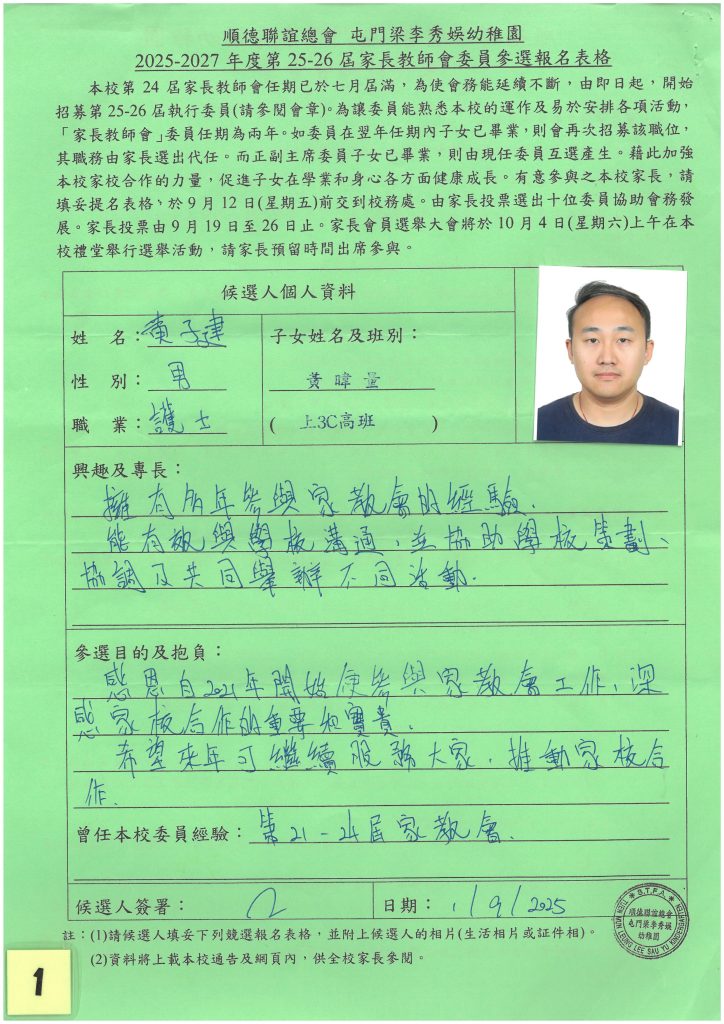 順德聯誼總會 屯門梁李秀娛幼稚園
2025-2027 年度第 25-26 屆家長教師會委員參選報名表格
本校第 24 屆家長教師會任期已於七月屆滿，為使會務能延續不斷，由即日起，開始
招募第 25-26 屆執行委員(請參閱會章)。為讓委員能熟悉本校的運作及易於安排各項活動，
「家長教師會」委員任期為兩年。如委員在翌年任期內子女已畢業，則會再次招募該職位，
其職務由家長選出代任。而正副主席委員子女已畢業，則由現任委員互選產生。藉此加強
本校家校合作的力量，促進子女在學業和身心各方面健康成長。有意參與之本校家長，請
填妥提名表格、於 9 月 12 日(星期五)前交到校務處。由家長投票選出十位委員協助會務發
展。家長投票由 9 月 19 日至 26 日止。家長會員選舉大會將於 10 月 4 日(星期六)上午在本
校禮堂舉行選舉活動，請家長預留時間出席參與。
候選人個人資料
姓 名：黃子建
子女姓名及班別：
性 別：男
黃暐量
職 業：護士
( 上3C高班 )
興趣及專長：
擁有多年參與家教會的經驗.
能有效與學校溝通，並協助學校策劃、
協調及共同舉辦不同活動.
參選目的及抱負：
感恩自2021年開始便參與家教會工作，深
感家校合作的重要和寶貴.
希望來年可繼續服務大家，推動家校合
作.
曾任本校委員經驗：第21-24屆家教會.
候選人簽署：
日期：1/9/2025
S.T.F.A.
TUEN MUN LEUNG LEE SAU YU KINDERGARTEN
順德聯誼總會
屯門梁李秀娛
幼稚園
註：(1)請候選人填妥下列競選報名表格，並附上候選人的相片(生活相片或証件相)。
(2)資料將上載本校通告及網頁內，供全校家長參閱。
1